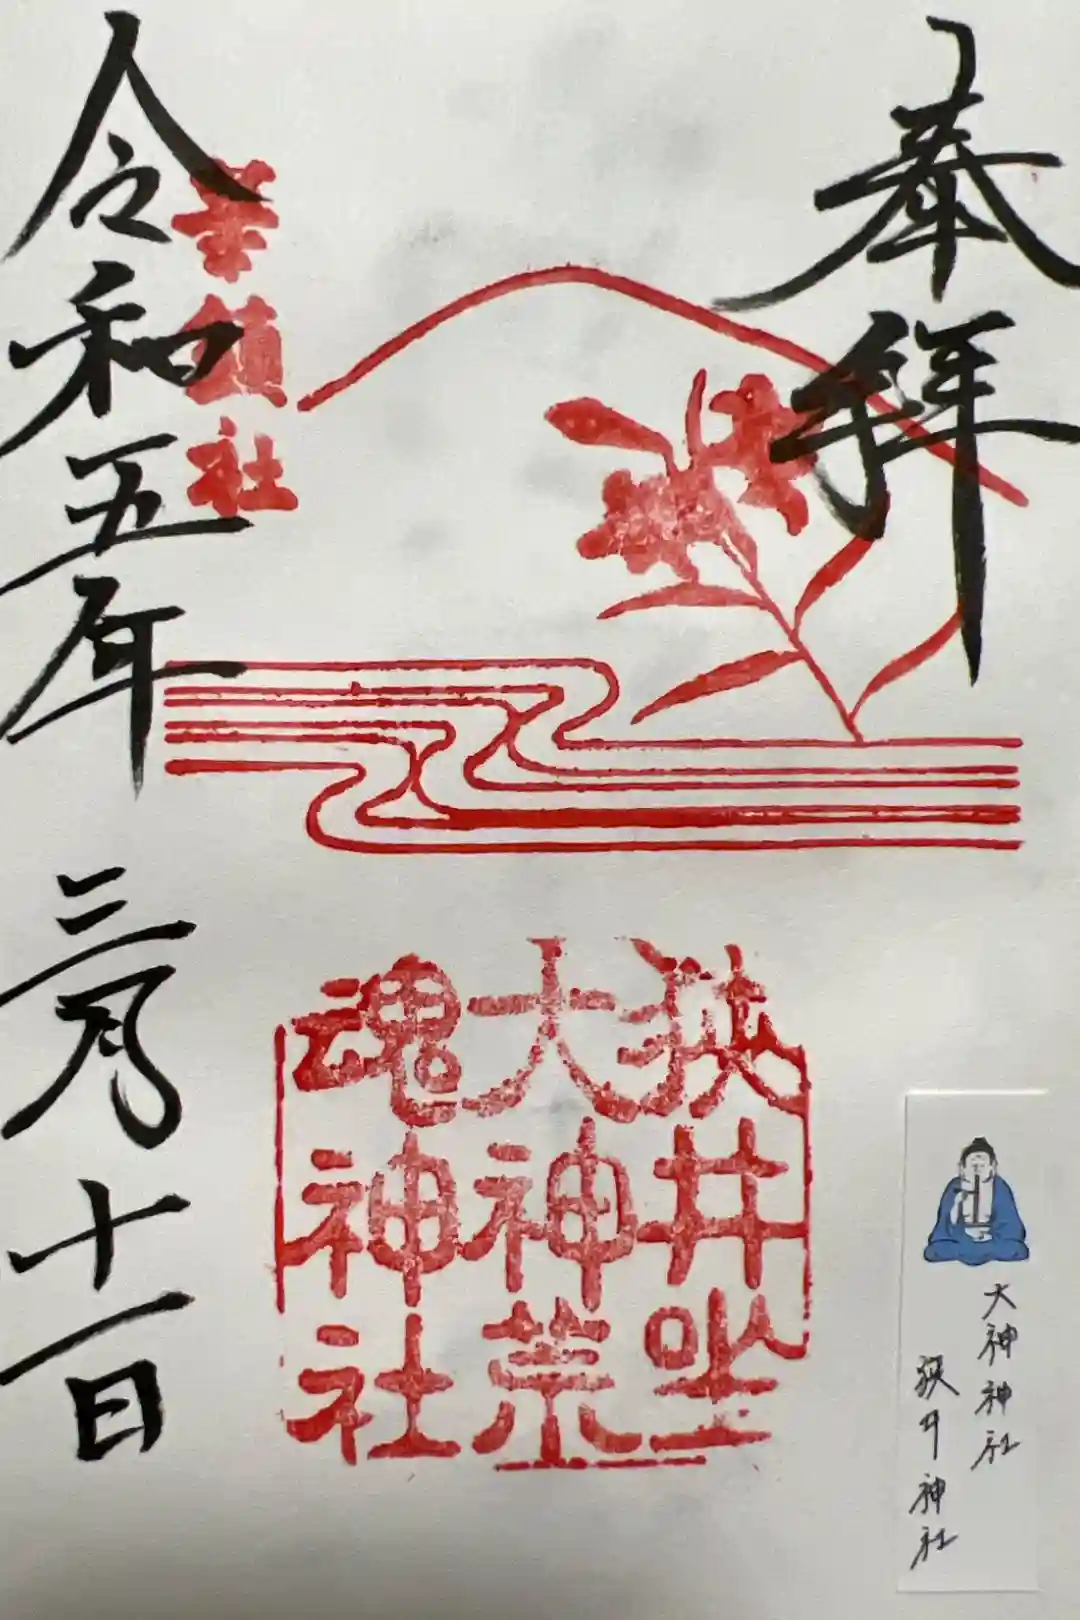 奉拝
狭井坐
大神荒
魂神社
華鎮社
令和五年 三月十一日
大神神社
狭井神社